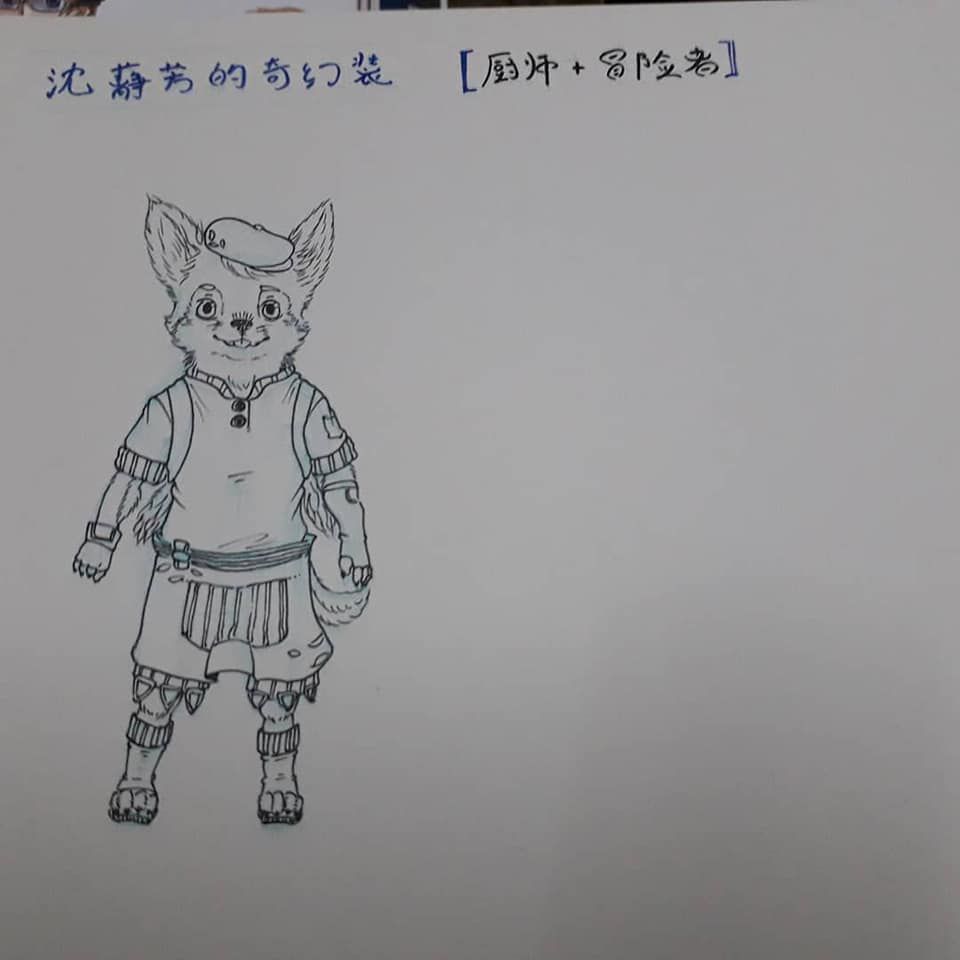 沈静芳的奇幻装 [厨师 + 冒险者]